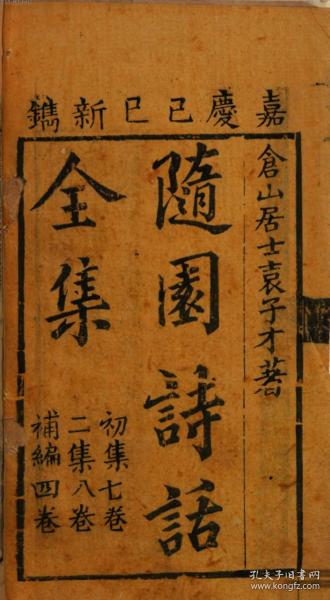 嘉慶己巳新鐫
倉山居士袁子才著
隨園詩話
全集
初集七卷
二集八卷
補編四卷
孔夫子旧书网